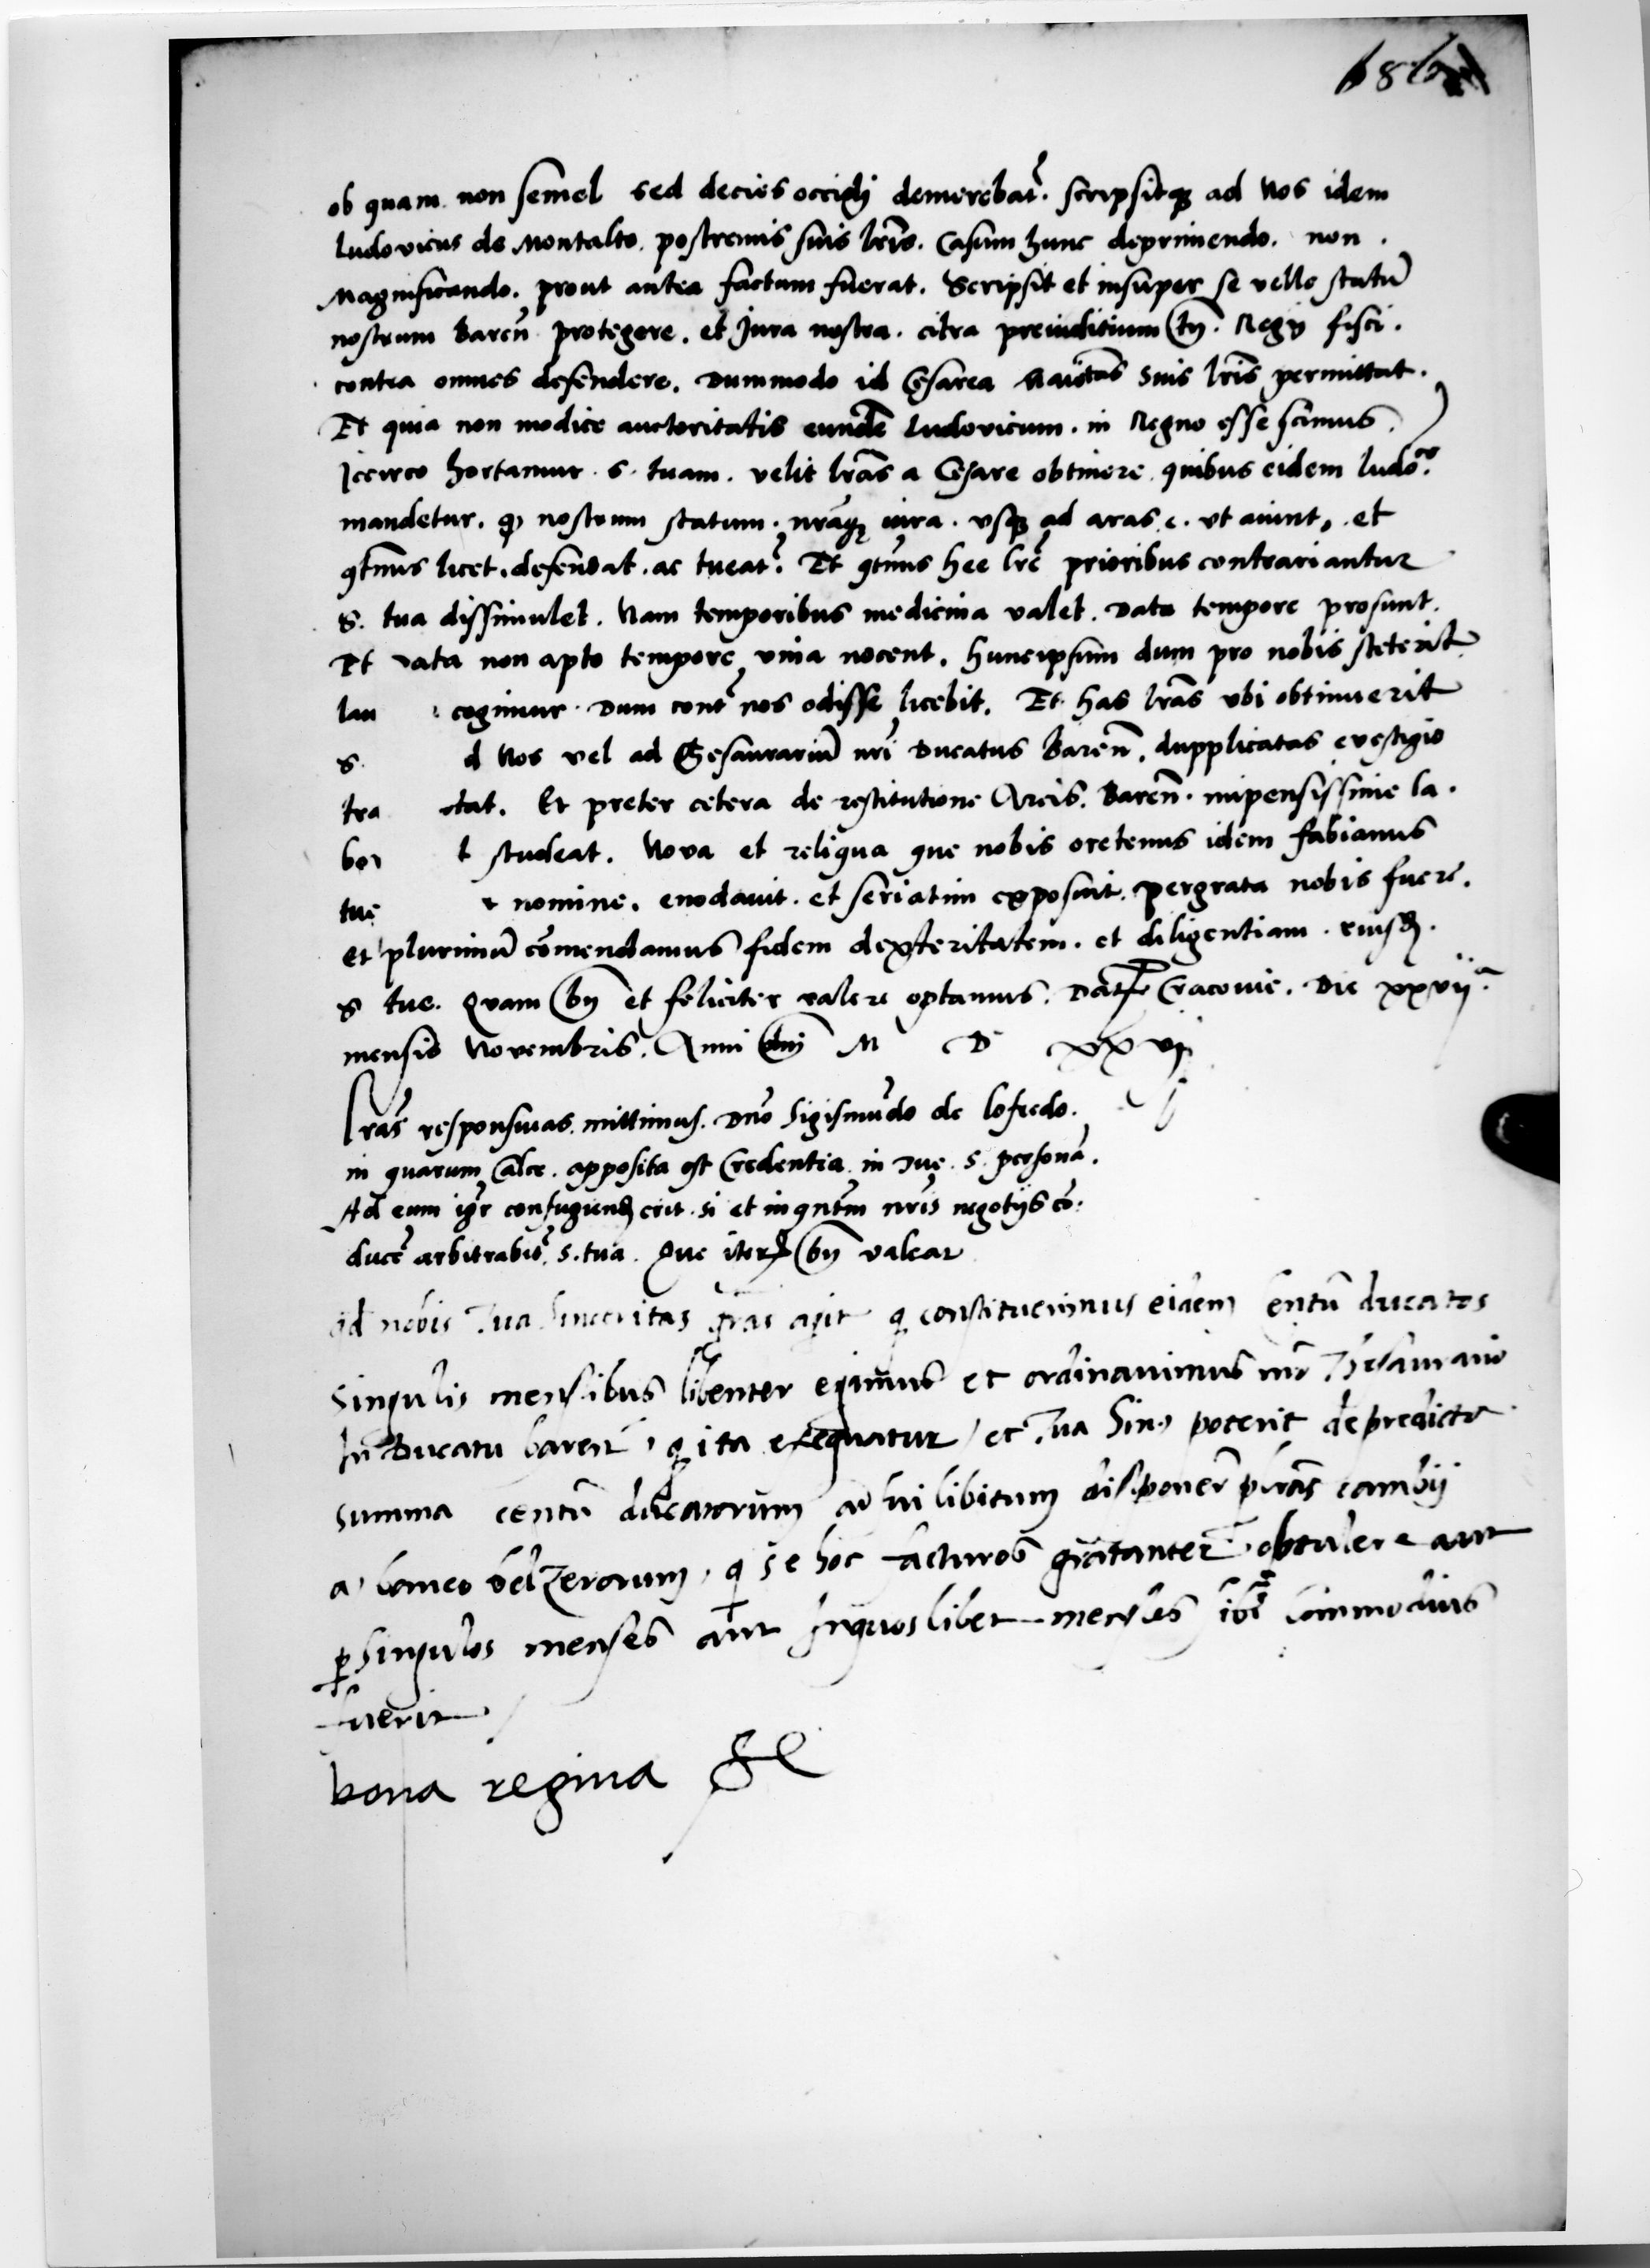 ob quam non semel sed decies occidi demerebat᷑. scripsitq; ad Nos idem
Ludovicus de Montalto. postremis suis lr̃is. Casum hunc deprimendo. non.
Magnificando. prout antea factum fuerat. Scripsit et insuper se velle statũ
nostrum Bareñ protegere. et Jura nostra. citra preiuditium tñ. Regij fisci.
contra omnes defendere. Dummodo id Cesarea Maiestas suis lr̃is permittat.
Et quia non modice auctoritatis eundẽ Ludovicum. in Regno esse scimus.
Iccirco hortamur. S. tuam. velit lr̃as a Cesare obtinere quibus eidem Ludo.co
mandetur. ꝙ nostrum statum. nr̃aq; iura. vsq; ad aras. ut aiunt, et
qtenus licet. defendat. ac tueat᷑. Et qtenus hee lr̃e prioribus contrariantur
S. tua dissimulet. Nam temporibus medicina valet. Data tempore prosunt.
Et data non apto tempore vina nocent. huncipsum dum pro nobis steterit
lau cogimur. Dum cont᷑ nos odisse licebit. Et has lr̃as vbi obtinuerit
S. d Nos vel ad Thesaurariũ nr̃i Ducatus Bareñ. dupplicatas evestigio
tra ttat. Et preter cetera de restitutione Arcis. Bareñ. impensissime la.
bor t studeat. Nova et reliqua que nobis oretenus idem fabianus
tue nomine. enodavit. et seriatim exposuit. pergrata nobis fuere.
et plurimũ cõmendamus fidem dexteritatem. et diligentiam. eiusd.
S tue. Quam bñ et feliciter valere optamus. Dat Cracovie. Die xxvii.a
mensis Novembris. Anni dñi M D xxvi
Lr̃as responsivas mittimus. Dño Sigismũdo de Lofredo.
in quarum Calce. apposita est Credentia. in Tue. S. personã.
Ad eum igr̃ confugiend erit. si et in qntũm nr̃is negotijs cõ:
ducẽ arbitrabit᷑. S. tua. Que iterũ bñ valeat
qd nobis Tua Sinceritas gr̃as agit q constituerimus eidem Centũ ducatos
Singulis mensibus libenter egimus et ordinavimus nr̃o Thesaurario
In Ducatu bareñ, q ita exequatur, et Tua Sin. poterit de predicta
summa centũ ducatorum ad sui libitum disponer̃ p lr̃as cambij
a banco Velzerorum, q se hoc facturos gratanter obtulere aut
p Singulos menses aut In quos libet menses ibi Commodius
fuerit
bona regina